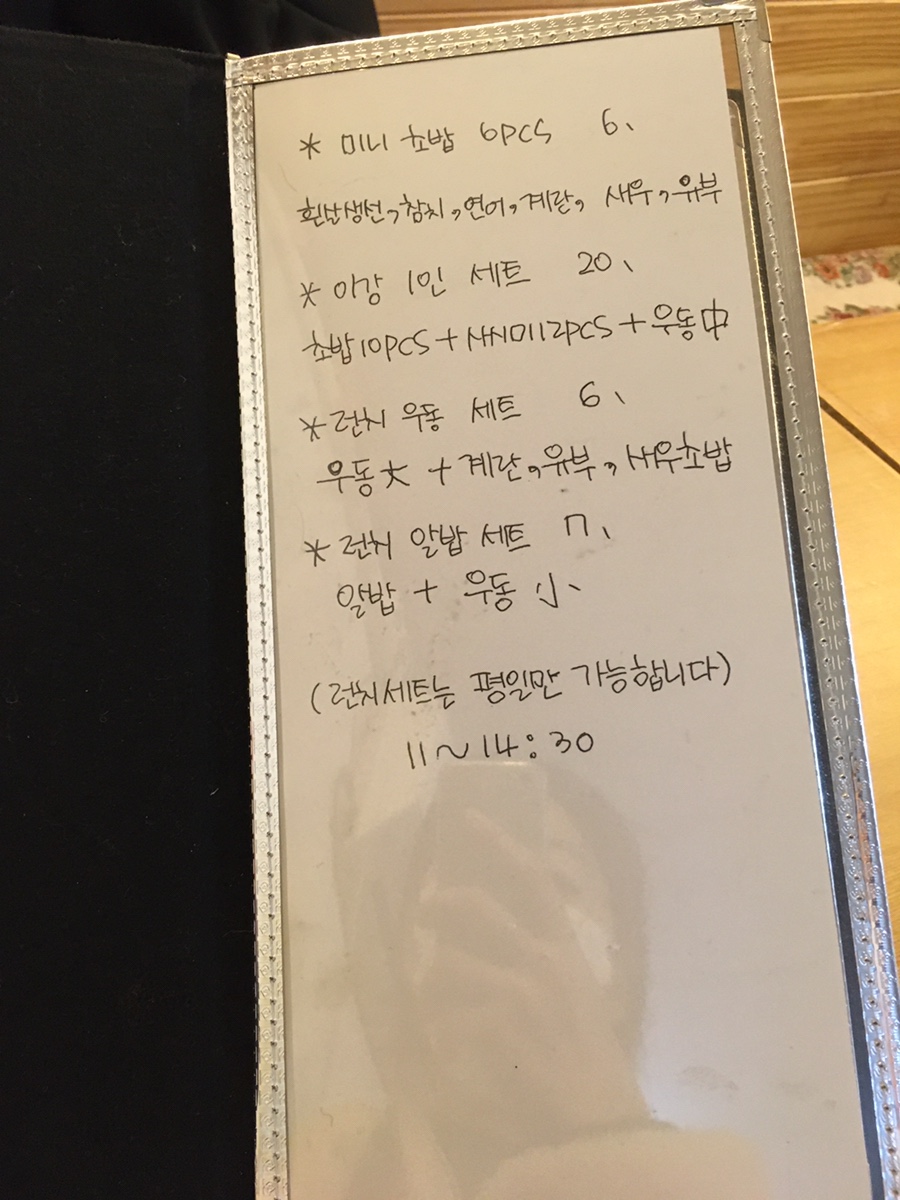 * 미니 초밥 6PCS 6、
흰살생선, 참치, 연어, 계란, 새우, 유부
* 이강 1인 세트 20、
초밥10PCS+사시미12PCS+우동中
* 런치 우동 세트 6、
우동大 + 계란, 유부, 새우초밥
* 런치 알밥 세트 7、
알밥 + 우동 小、
(런치세트는 평일만 가능합니다)
11~14:30